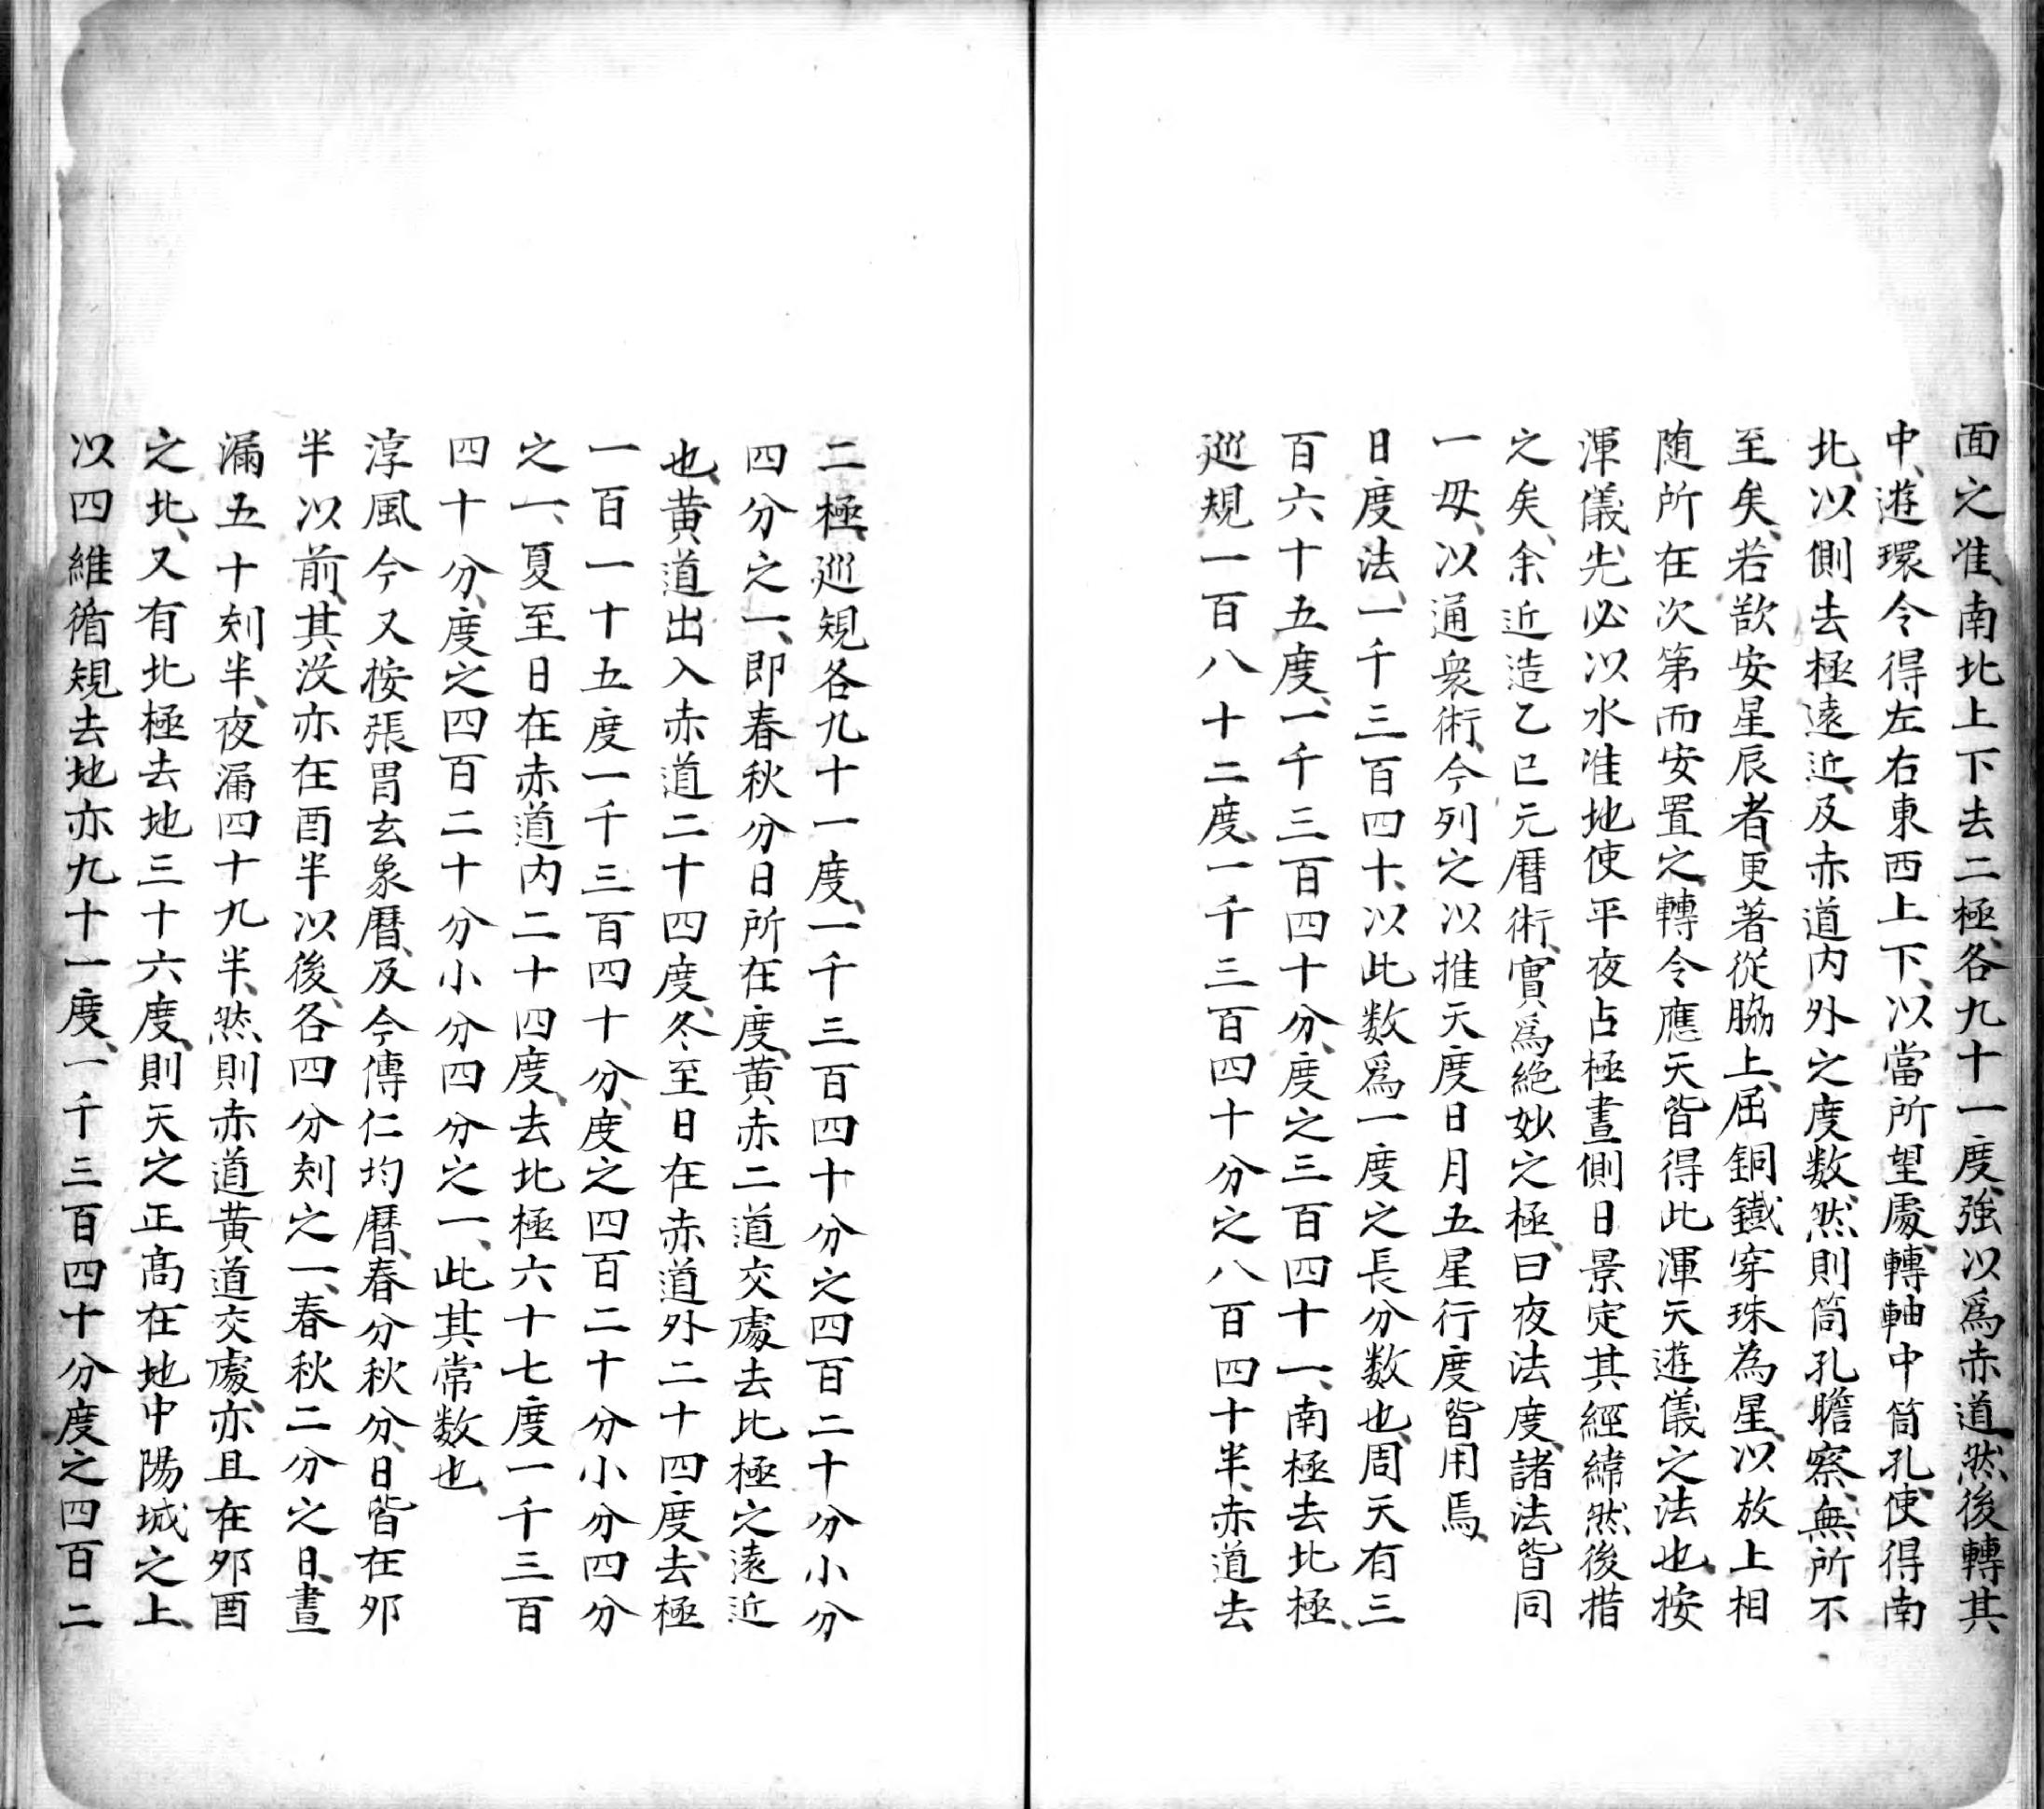 面之准、南北上下去二極、各九十一度、強以爲赤道、然後轉其
中、遊環令得左右東西上下、以當所望處、轉軸中筒孔、使得南
北、以側去極遠近、及赤道内外之度数、然則筒孔瞻察、無所不
至矣、若歆安星辰者、更著從脇上、屈銅鐵穿珠為星、以放上相
随所在次第而安置之、轉令應天皆得此渾天遊儀之法也、按
渾儀、先必以水准地使平夜占極晝側日景定其經緯然後措
之矣、余近造乙巳元暦術、實爲絶妙之極、曰夜法度、諸法皆同
一母、以通衆術、今列之以推天度日月五星行度皆用焉、
日度法、一千三百四十、以此数爲一度之長分数也、周天有三
百六十五度、一千三百四十分、度之三百四十一、南極去北極、
廵規一百八十二度、一千三百四十分之八百四十半、赤道去
二極、廵規各九十一度、一千三百四十分之四百二十分小分
四分之一、即春秋分日所在度、黄赤二道交處去比極之遠近
也、黄道出入赤道二十四度、冬至日在赤道外二十四度、去極
一百一十五度一千三百四十分、度之四百二十分小分四分
之一、夏至日在赤道内二十四度、去北極六十七度一千三百
四十分、度之四百二十分小分四分之一、此其常数也、
淳風今又按張胃玄象暦、及今傳仁均暦、春分秋分、日皆在夘
半以前、其没亦在酉半以後、各四分刻之一、春秋二分之日、晝
漏五十刻半、夜漏四十九半、然則赤道黄道交處、亦且在夘酉
之北、又有北極去地三十六度、則天之正髙在地中陽城之上、
以四維循規去地亦九十一度、一千三百四十分度之四百二